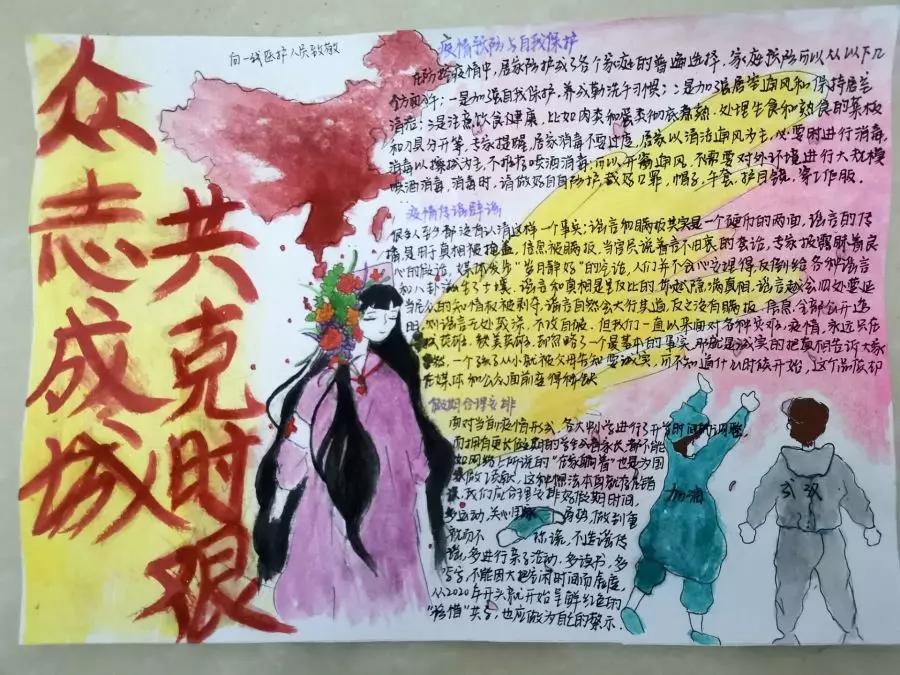 众志成城
共克时艰
向一线医护人员致敬
疫情预防与自我保护
在防控疫情中,居家防护成了各个家庭的普遍选择,家庭预防可以从以下几
个方面来:一是加强自我保护,养成勤洗手习惯;二是加强居室通风和保持居兰
清洁;三是注意饮食健康,比如肉类和蛋类彻底煮熟,处理生食和熟食的菜板
和刀具分开等,专家提醒,居家消毒不要过度,居家以清洁通风为主,必要时进行消毒,
消毒以擦拭为主,不推荐喷洒消毒;可以开窗通风,不需要对外环境进行大规模
喷洒消毒,消毒时,请做好自身防护,戴好口罩,帽子,手套,护目镜,穿工作服.
疫情传谣辟谣
很多人到今都没有认清这样一个事实;谣言和瞒报其实是一个硬币的两面,谣言的传
播,是用于真相被掩盖,信息被瞒报,当官员说着言不由衷的套话,专家披露昧着良
心的假话,媒体发步"岁月静好"的冷话,人们并不会心安理得,反倒给各种谣言
和八卦诞生了土壤.谣言和真相是呈反比的
当民众的知情权被剥夺,谣言自然会大行其道,反之没有瞒报,信息全部公开透
明,则谣言无处藏深,不攻自破.但我们一直以来面对各种灾难,疫情,永远只在
却忽略了一个最基本的事实,那就是诚实的把真相告诉大家
一个孩子从小就被父母告知要诚实,可不知道什么时候开始,这个品质却
在媒体和公众面前变得稀缺
假期合理安排
面对当前疫情形式,各大中小学进行了开学时间的调整,
而拥有更长假期的学生或者家长都不能
如网络上所说的"在家躺着"也是为国
家做了贡献,这种做法本身就存在消
极,我们应合理安排好假期时间,
多运动,关心
不造谣传
谣,多进行亲子活动,多读书,多
写字,不能因大把空闲时间而虚度,
从2020年开头就开始呈鲜红色的
"珍惜"共字,也应做为自己的警示.
加油
武汉